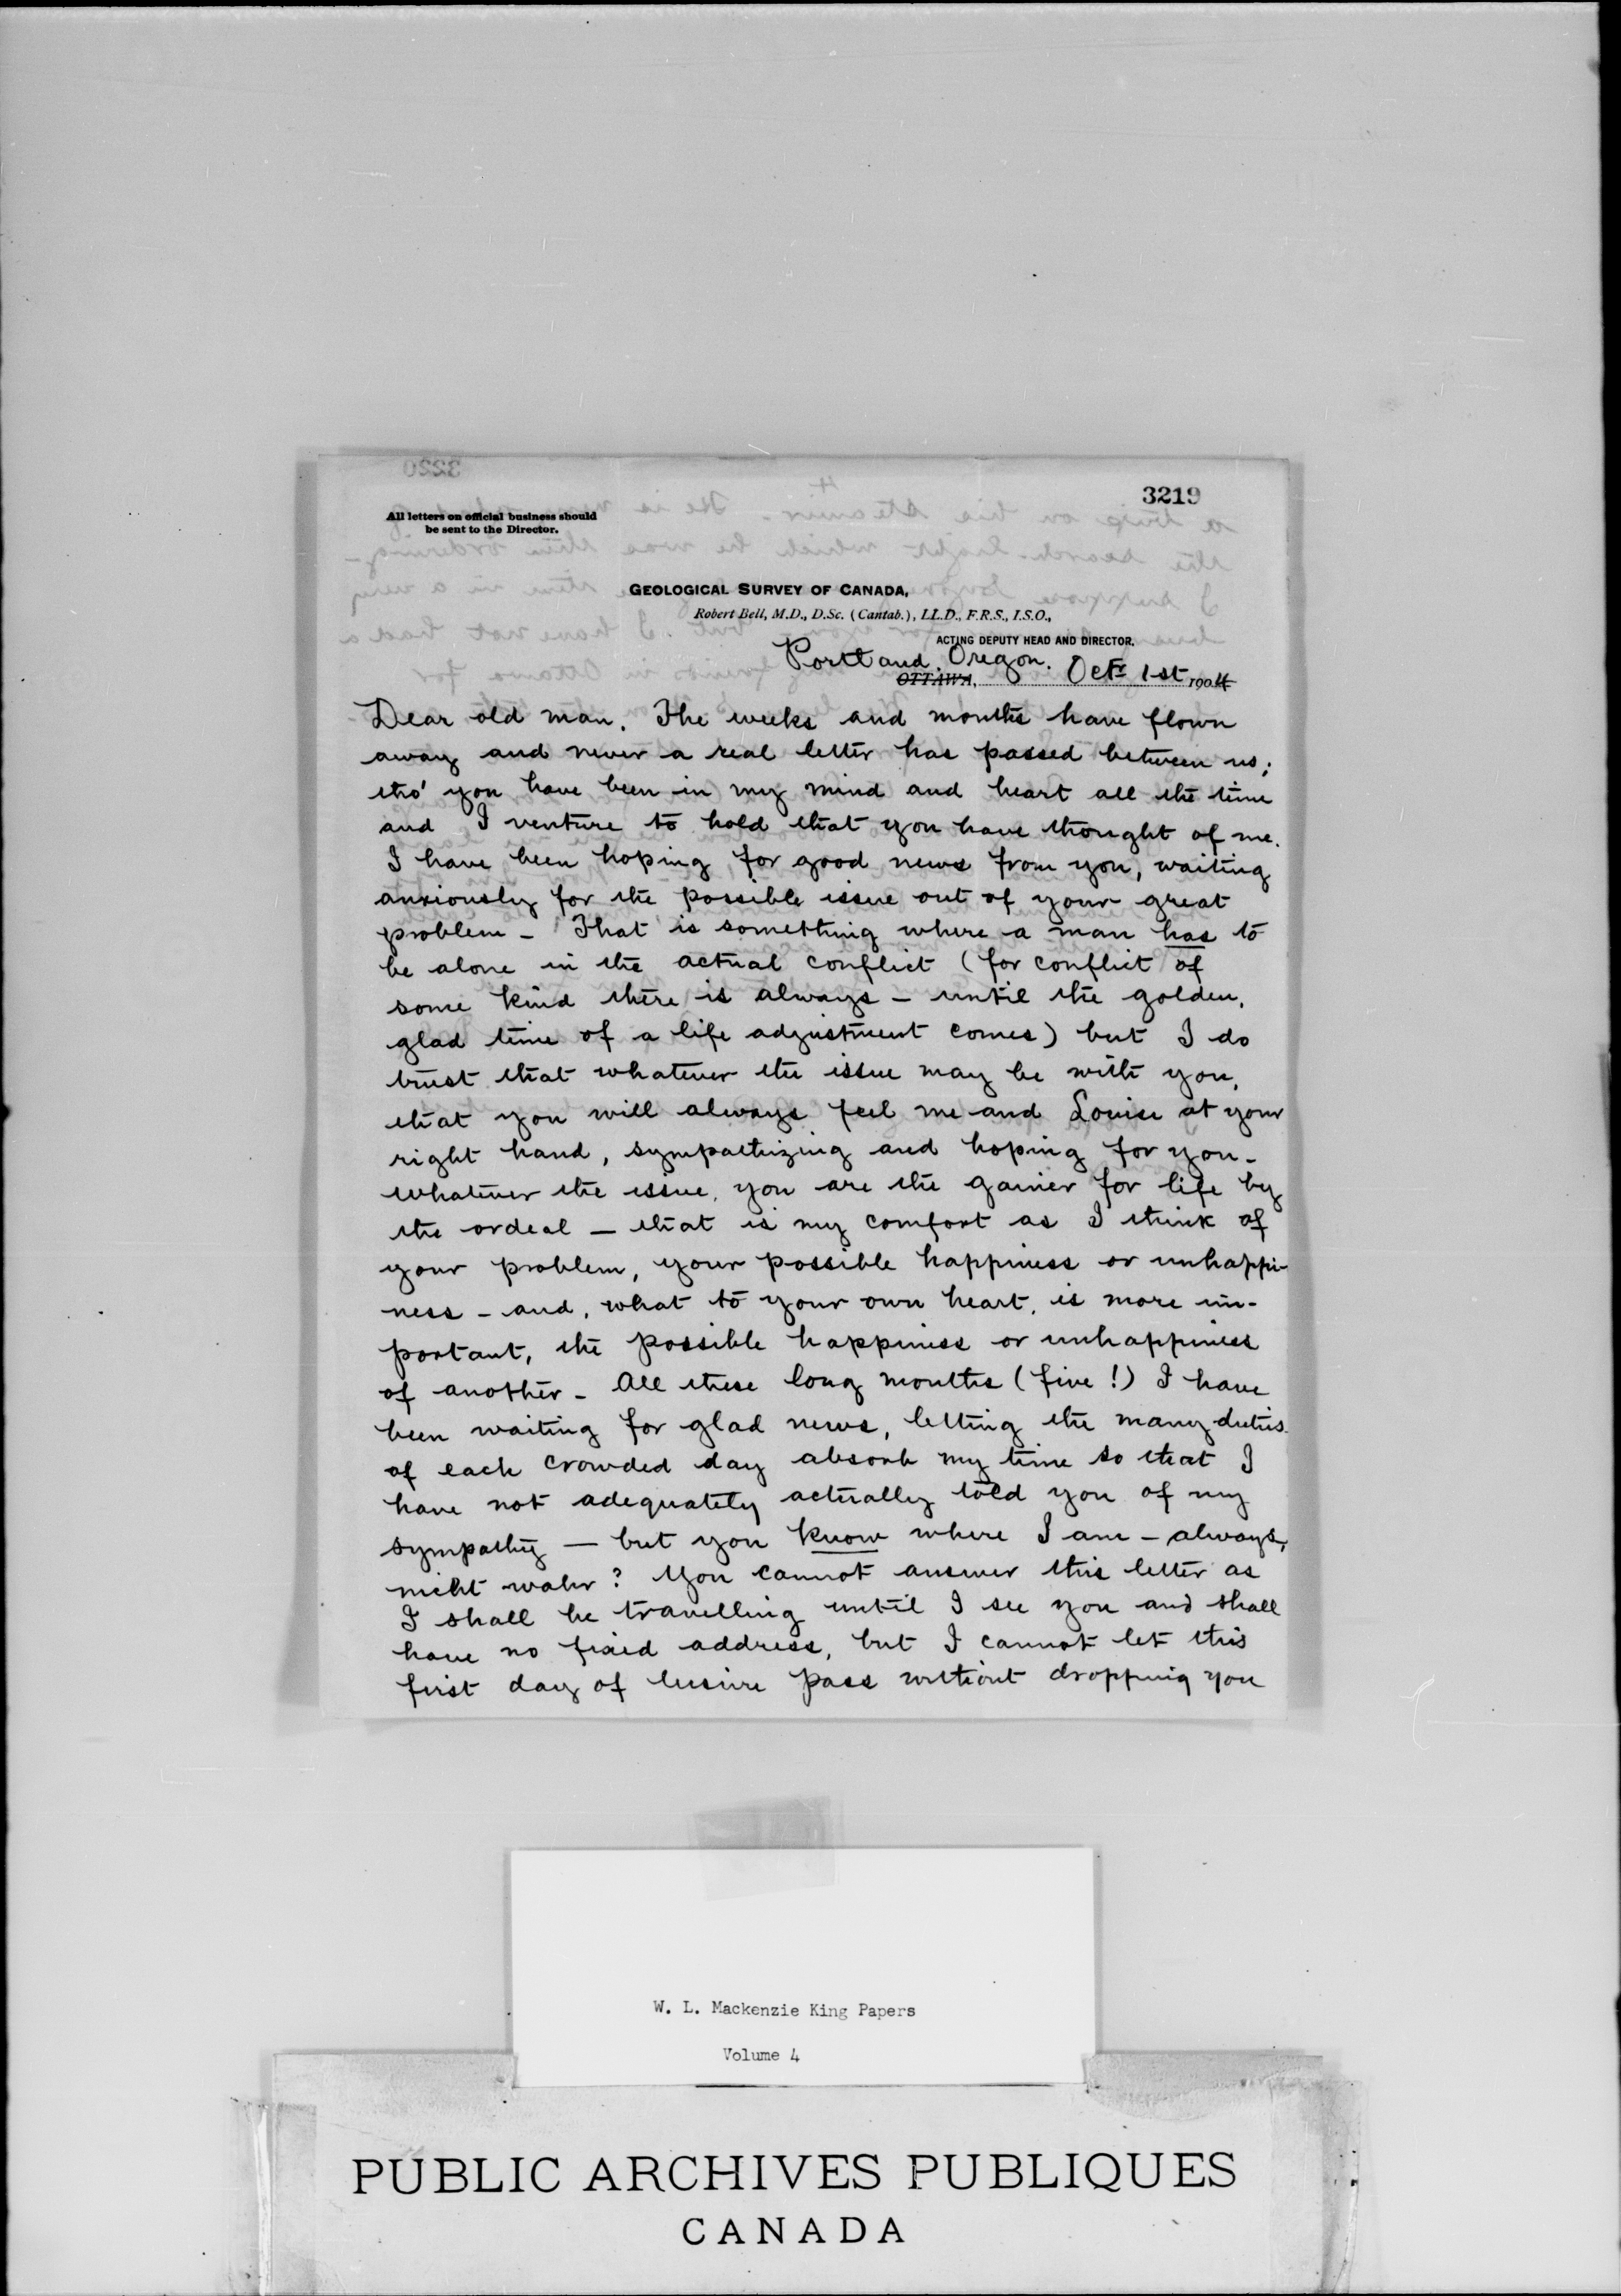 3219
All letters on official business should
be sent to the Director.
GEOLOGICAL SURVEY OF CANADA,
Robert Bell, M.D., D.Sc. (Cantab.), LL.D., F.R.S., I.S.O.,
ACTING DEPUTY HEAD AND DIRECTOR.
Portland, Oregon.
OTTAWA, Octr 1st 1904
Dear old man. The weeks and months have flown
away and never a real letter has passed between us;
tho' you have been in my mind and heart all the time
and I venture to hold that you have thought of me.
I have been hoping for good news from you, waiting
anxiously for the possible issue out of your great
problem - That is something where a man has to
be alone in the actual conflict (for conflict of
some kind there is always - until the golden,
glad time of a life adjustment comes) but I do
trust that whatever the issue may be with you,
that you will always feel me and Louise at your
right hand, sympathizing and hoping for you -
whatever the issue, you are the gainer for life by
the ordeal - that is my comfort as I think of
your problem, your possible happiness or unhappi-
ness - and, what to your own heart, is more im-
portant, the possible happiness or unhappiness
of another - All these long months (five!) I have
been waiting for glad news, letting the many duties
of each crowded day absorb my time so that I
have not adequately actually told you of my
sympathy - but you know where I am - always,
nicht wahr? You cannot answer this letter as
I shall be travelling until I see you and shall
have no fixed address, but I cannot let this
first day of leisure pass without dropping you
W. L. Mackenzie King Papers
Volume 4
PUBLIC ARCHIVES PUBLIQUES
CANADA